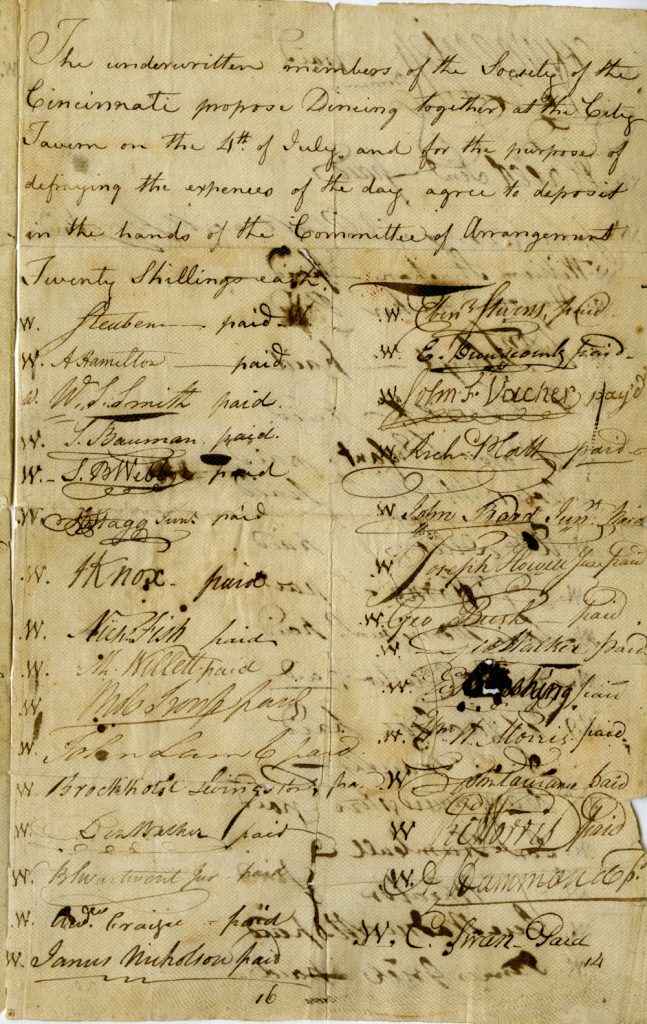 The underwritten members of the Society of the
Cincinnati propose Dineing together at the City
Tavern on the 4th of July, and for the purpose of
defraying the expences of the day agree to deposit
in the hands of the Committee of Arrangement
Twenty Shillings each.
W. Steuben paid
W. A Hamilton paid
W. W. S. Smith paid.
W. S. Bauman paid.
W. S. B Webb paid
W. Stagg Junr. paid
W. HKnox paid
W. Nich: Fish paid
W. M. Willett paid
W. paid
W. John Lamb paid
W. Brockholst Livingston
W. Ben Walker paid
W. B Swartwout Jur paid
W. Andw. Craigie paid
W. James Nicholson paid
16
W. Ebenr. Stevens, paid
W. E. Dunscomb paid
W. John F. Vacher pay'd
W. Rich: Platt paid
W. John Junr. paid
W. Joseph Howell Jur paid
W. Geo Bush paid
W. Walker paid
W. paid
W. Wm. W. Morris paid
W. John paid
W. Morris Paid
W. D. Hammond
W. C. Swan Paid
14